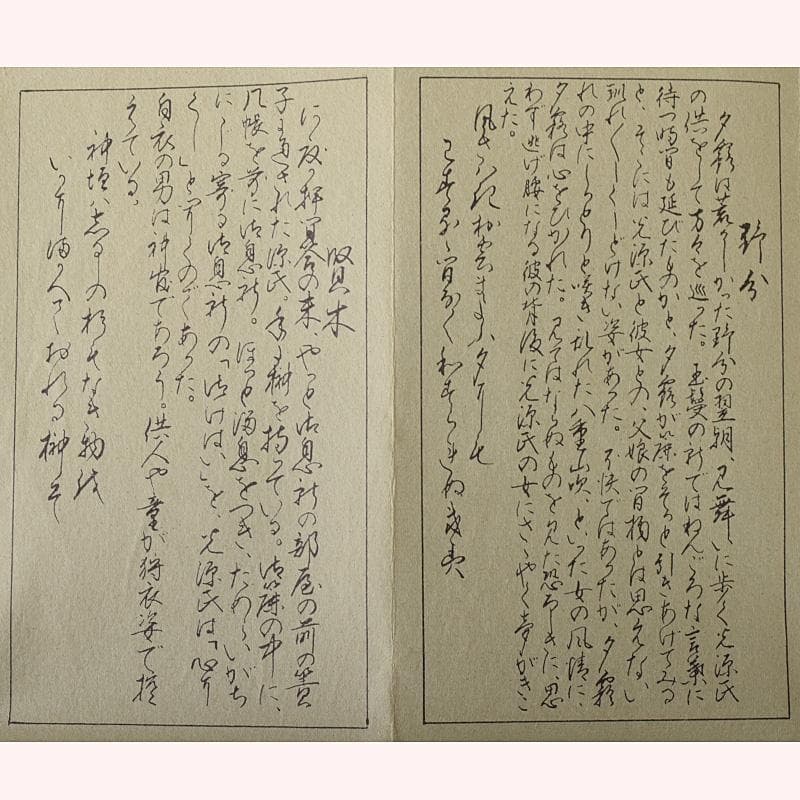 野分
夕霧は荒々しかった野分の翌朝、見舞いに歩く光源氏
の供をして方々を巡った。玉鬘の所ではねんごろな言葉に
待つ時間も延びたものかと、夕霧が簾をそっと引きあげてみる
と、そこには光源氏と彼女との、父娘の間柄とは思えない
馴れ〱しくしどけない姿があった。不快ではあったが、夕霧
れの中にしっとりと咲き乱れた八重山吹、といった女の風情に、
夕霧は心をひかれた。見てはならぬものを見た恐ろしさに、思
わず逃げ腰になる彼の背後に光源氏の女にさゝやく声がきこ
えた。
風さハきむら雲まよふ夕にも
わするゝ間なくわすられぬ君
賢木
に及び押問答の末、やっと御息所の部屋の前の簀
子に通された源氏。手に榊を持っている。御簾の中に、
几帳を前に御息所。ほっと溜息をつき、ためらいがち
にいじり寄る御息所の「御けはい」を、光源氏は「心に
くし」と聞くのであった。
白衣の男は神官であろう。供人や童が狩衣姿で控
えている。
神垣ハしるしの杉もなき物を
いかにまかへておれる榊そ